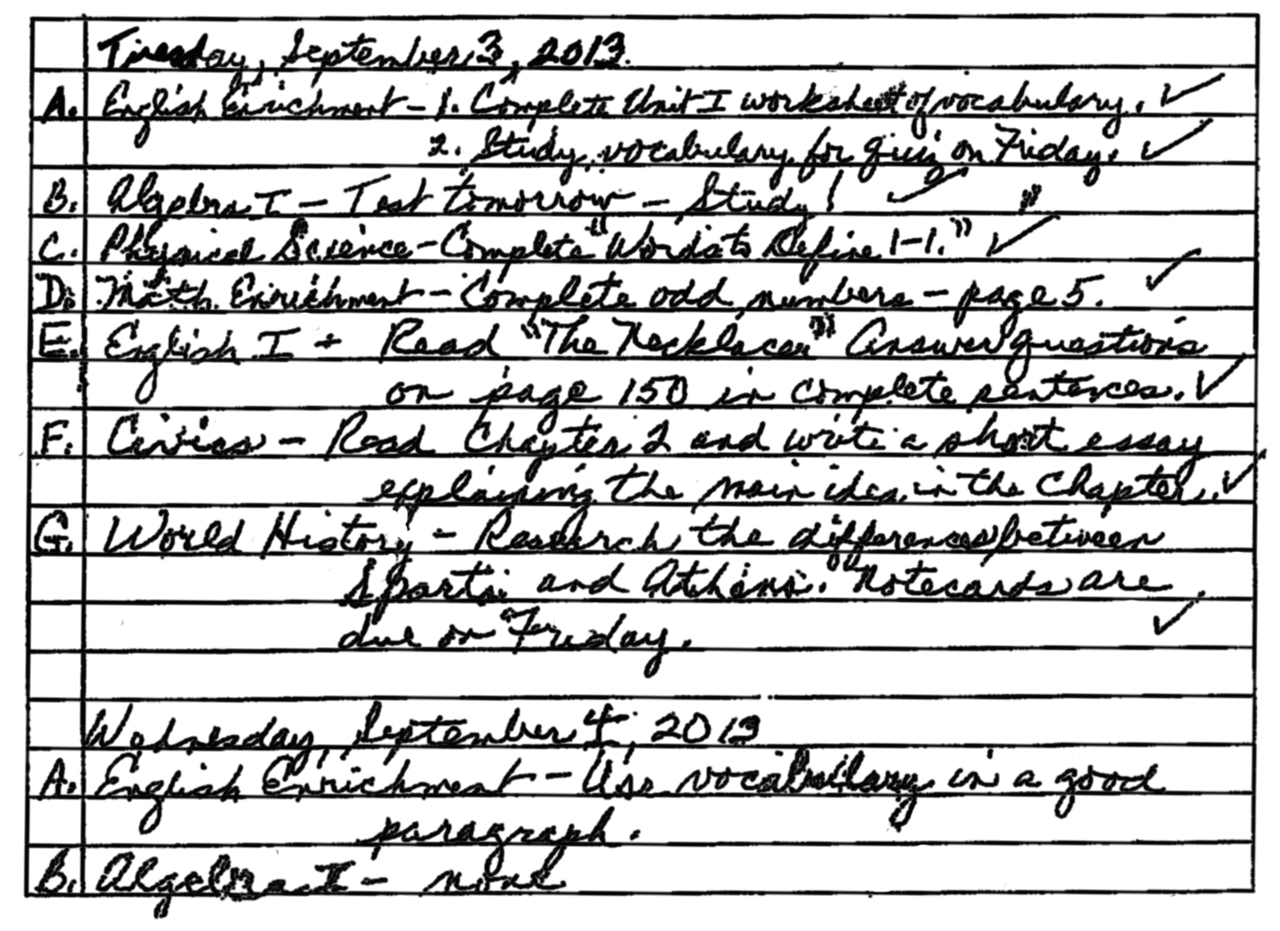 Tuesday, September 3, 2013.
A. English Enrichment - 1. Complete Unit I worksheet of vocabulary. ✓
2. Study vocabulary for quiz on Friday. ✓
B. Algebra I - Test tomorrow - Study! ✓
C. Physical Science - Complete "Words to Define 1-1." ✓
D. Math Enrichment - Complete odd numbers - page 5. ✓
E. English I - Read "The Necklace" Answer questions
on page 150 in complete sentences. ✓
F. Civics - Read Chapter 2 and write a short essay
explaining the main idea in the Chapter. ✓
G. World History - Research the differences between
Sparta and Athens. Notecards are
due on Friday. ✓
Wednesday, September 4, 2013
A. English Enrichment - Use vocabulary in a good
paragraph.
B. Algebra I - none